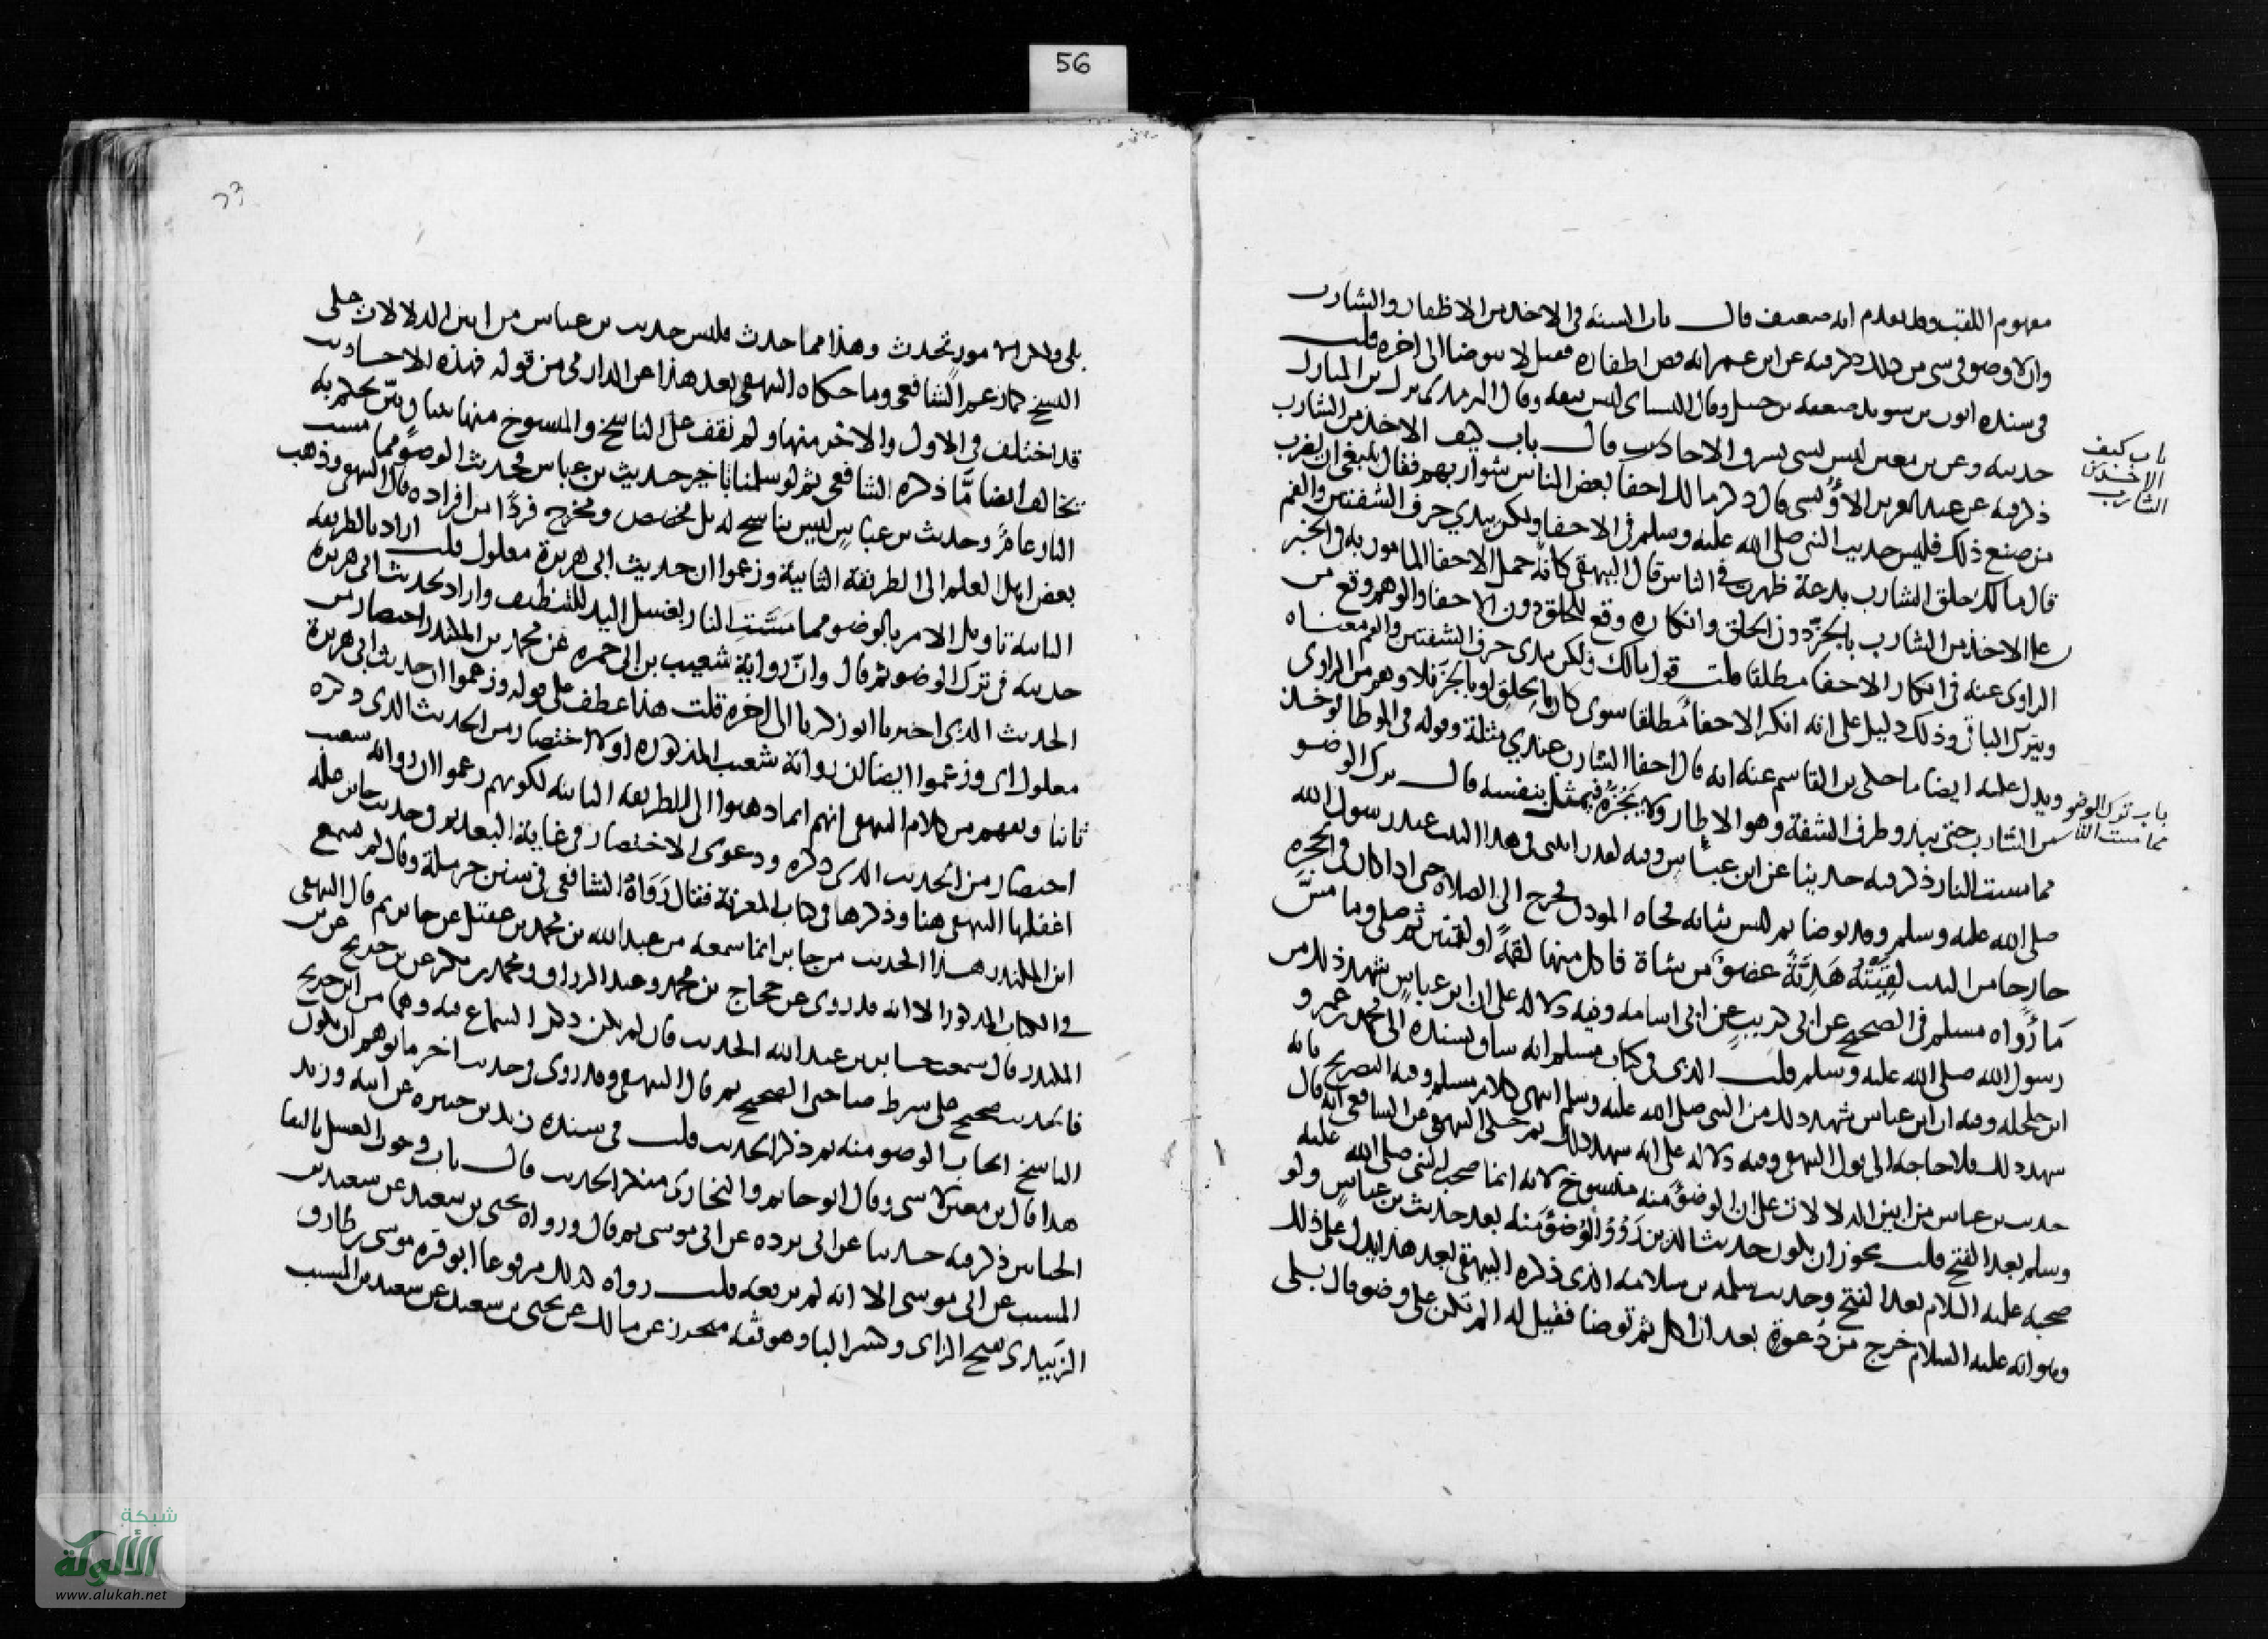 56
مفهوم اللقب وقد تقدم انه ضعيف قال باب السنة في الاخذ من الاظفار والشارب
وان لا وضوء في شي من ذلك ذكر فيه عن ابن عمر انه قص اظفاره فقيل الا تتوضا الى اخره قلت
في سنده ايوب بن سويد ضعفه بن حنبل وقال النساي ليس بثقه وقال الرمدى ترك بن المبارك
حديثه وعن بن معين ليس بشي يسرق الاحاديث قال باب كيف الاخذ من الشارب
باب كيف
الاخذ من
الشارب
ذكر فيه عن عبد العزيز الاويسي قال ذكر مالك احفا بعض الناس شواربهم فقال ينبغي ان يضرب
من صنع ذلك فليس حديث النبي صلى الله عليه وسلم في الاحفا ولكن يبدي حرف الشفتين والفم
قال مالك حلق الشارب بدعة ظهرت في الناس قال البيهقي كانه حمل الاحفا المامور به في الخبر
على الاخذ من الشارب بالجز دون الحلق وانكاره وقع للحلق دون الاحفا والوهم وقع من
الراوي عنه في انكار الاحفا مطلقا قلت قول مالك ولكن يبدي حرف الشفتين والفم معناه
ويترك الباقي وذلك دليل على انه انكر الاحفا مطلقا سوى كان بالحلق او بالجز فلا وهم من الراوي
ويدل عليه ايضا ما حكى بن القاسم عنه انه قال احفا الشارب عندي مثلة وقوله في الموطا يوخذ
من الشارب حتى يبدو طرف الشفة وهو الاطار ولا يجزه فيمثل بنفسه قال ترك الوضو
باب ترك الوضو
مما مست النار
مما مست النار ذكر فيه حديثا عن ابن عباس وفيه لقد رايتني في هذا البيت عند رسول الله
صلى الله عليه وسلم وقد توضا ثم لبس ثيابه فجاه الموذن فخرج الى الصلاة حتى اذا كان في الحجرة
خارجا من البيت لقيته هدية عضو من شاة فاكل منها لقمة او لقمتين ثم صلى وما مس
ما رواه مسلم في الصحيح عن ابي كريب عن ابي اسامه وفيه دلالة على ان ابن عباس شهد ذلك من
رسول الله صلى الله عليه وسلم قلت الذي في كتاب مسلم انه ساق بسنده الى محمد بن عمرو
ابن حلحله وفيه ان ابن عباس شهد ذلك من النبي صلى الله عليه وسلم انتهى كلام مسلم وفيه التصريح بانه
شهد ذلك فلا حاجة الى قول البيهقي وفيه دلالة على انه شهد ذلك ثم حكى البيهقي عن الشافعي انه قال
حديث بن عباس من ابين الدلالات على ان الوضو منه منسوخ لانه انما صحب النبي صلى الله عليه
وسلم بعد الفتح قلت يجوز ان يكون حديث الذين رووا الوضو منه بعد حديث بن عباس ولو
صحبه عليه السلام بعد الفتح وحديث سلمه بن سلامه الذي ذكره البيهقي بعد هذا يدل على ذلك
وهو انه عليه السلام خرج من دعوة بعد ان اكل ثم توضا فقيل له الم تكن على وضو قال بلى
بلى ولكن الامور تحدث وهذا مما حدث فليس حديث بن عباس من ابين الدلالات على
النسخ كما زعم الشافعي وما حكاه البيهقي بعد هذا عن الدارمي من قوله فهذه الاحاديث
قد اختلف في الاول والاخر منها ولم نقف على الناسخ والمنسوخ منها ببيان بين يحكم به
يخالف ايضا ما ذكره الشافعي ثم لو سلمنا تاخير حديث بن عباس فحديث الوضو مما مست
النار عام وحديث بن عباس ليس بناسخ له بل مخصص ومخرج فردا من افراده قال البيهقي وذهب
بعض اهل العلم الى الطريقة الثانية وزعموا ان حديث ابي هريرة معلول قلت اراد بالطريقة
الثانية تاويل الامر بالوضو مما مست النار بغسل اليد للتنظيف واراد بحديث ابي هريرة
حديثه في ترك الوضو ثم قال وان رواية شعيب بن ابي حمزه عن محمد بن المنكدر اختصار من
الحديث الذي اخبرنا ابو زكريا الى اخره قلت هذا عطف على قوله وزعموا ان حديث ابي هريرة
معلول اى وزعموا ايضا ان رواية شعيب المذكوره اولا اختصار من الحديث الذي ذكره
ثانيا ويفهم من كلام البيهقي انهم انما ذهبوا الى الطريقة الثانية لكونهم زعموا ان رواية شعيب
اختصار من الحديث الذي ذكره ودعوى الاختصار في غاية البعد وفي حديث جابر علة
اغفلها البيهقي هنا وذكرها في كتاب المعرفة فقال رواه الشافعي في سنن حرملة وقال لم يسمع
ابن المنكدر هذا الحديث من جابر انما سمعه من عبد الله بن محمد بن عقيل عن جابر ثم قال البيهقي
في الكتاب المذكور الا انه قد روى عن حجاج بن محمد وعبد الرزاق ومحمد بن بكر عن بن جريج عن بن
المنكدر قال سمعت جابر بن عبد الله الحديث قال لم يكن ذكر السماع فيه وهما من ابن جريج
فالحديث صحيح على شرط صاحبي الصحيح ثم قال البيهقي وقد روى في حديث اخر ما توهم ان يكون
الناسخ ايجاب الوضو منه ثم ذكر الحديث قلت في سنده زيد بن جبيره عن ابيه وزيد
هذا قال بن معين لا شي وقال ابو حاتم والبخاري منكر الحديث قال باب وجوب الغسل بالتقا
الختانين ذكر فيه حديثا عن ابي برده عن ابي موسى ثم قال ورواه يحيى بن سعيد عن سعيد بن
المسيب عن ابي موسى الا انه لم يرفعه قلت رواه كذلك مرفوعا ابو قره موسى بن طارق
الزبيدي بفتح الزاى وكسر البا وهو ثقه محدث عن مالك عن يحيى بن سعيد عن سعيد بن المسيب
شبكة
الألوكة
www.alukah.net